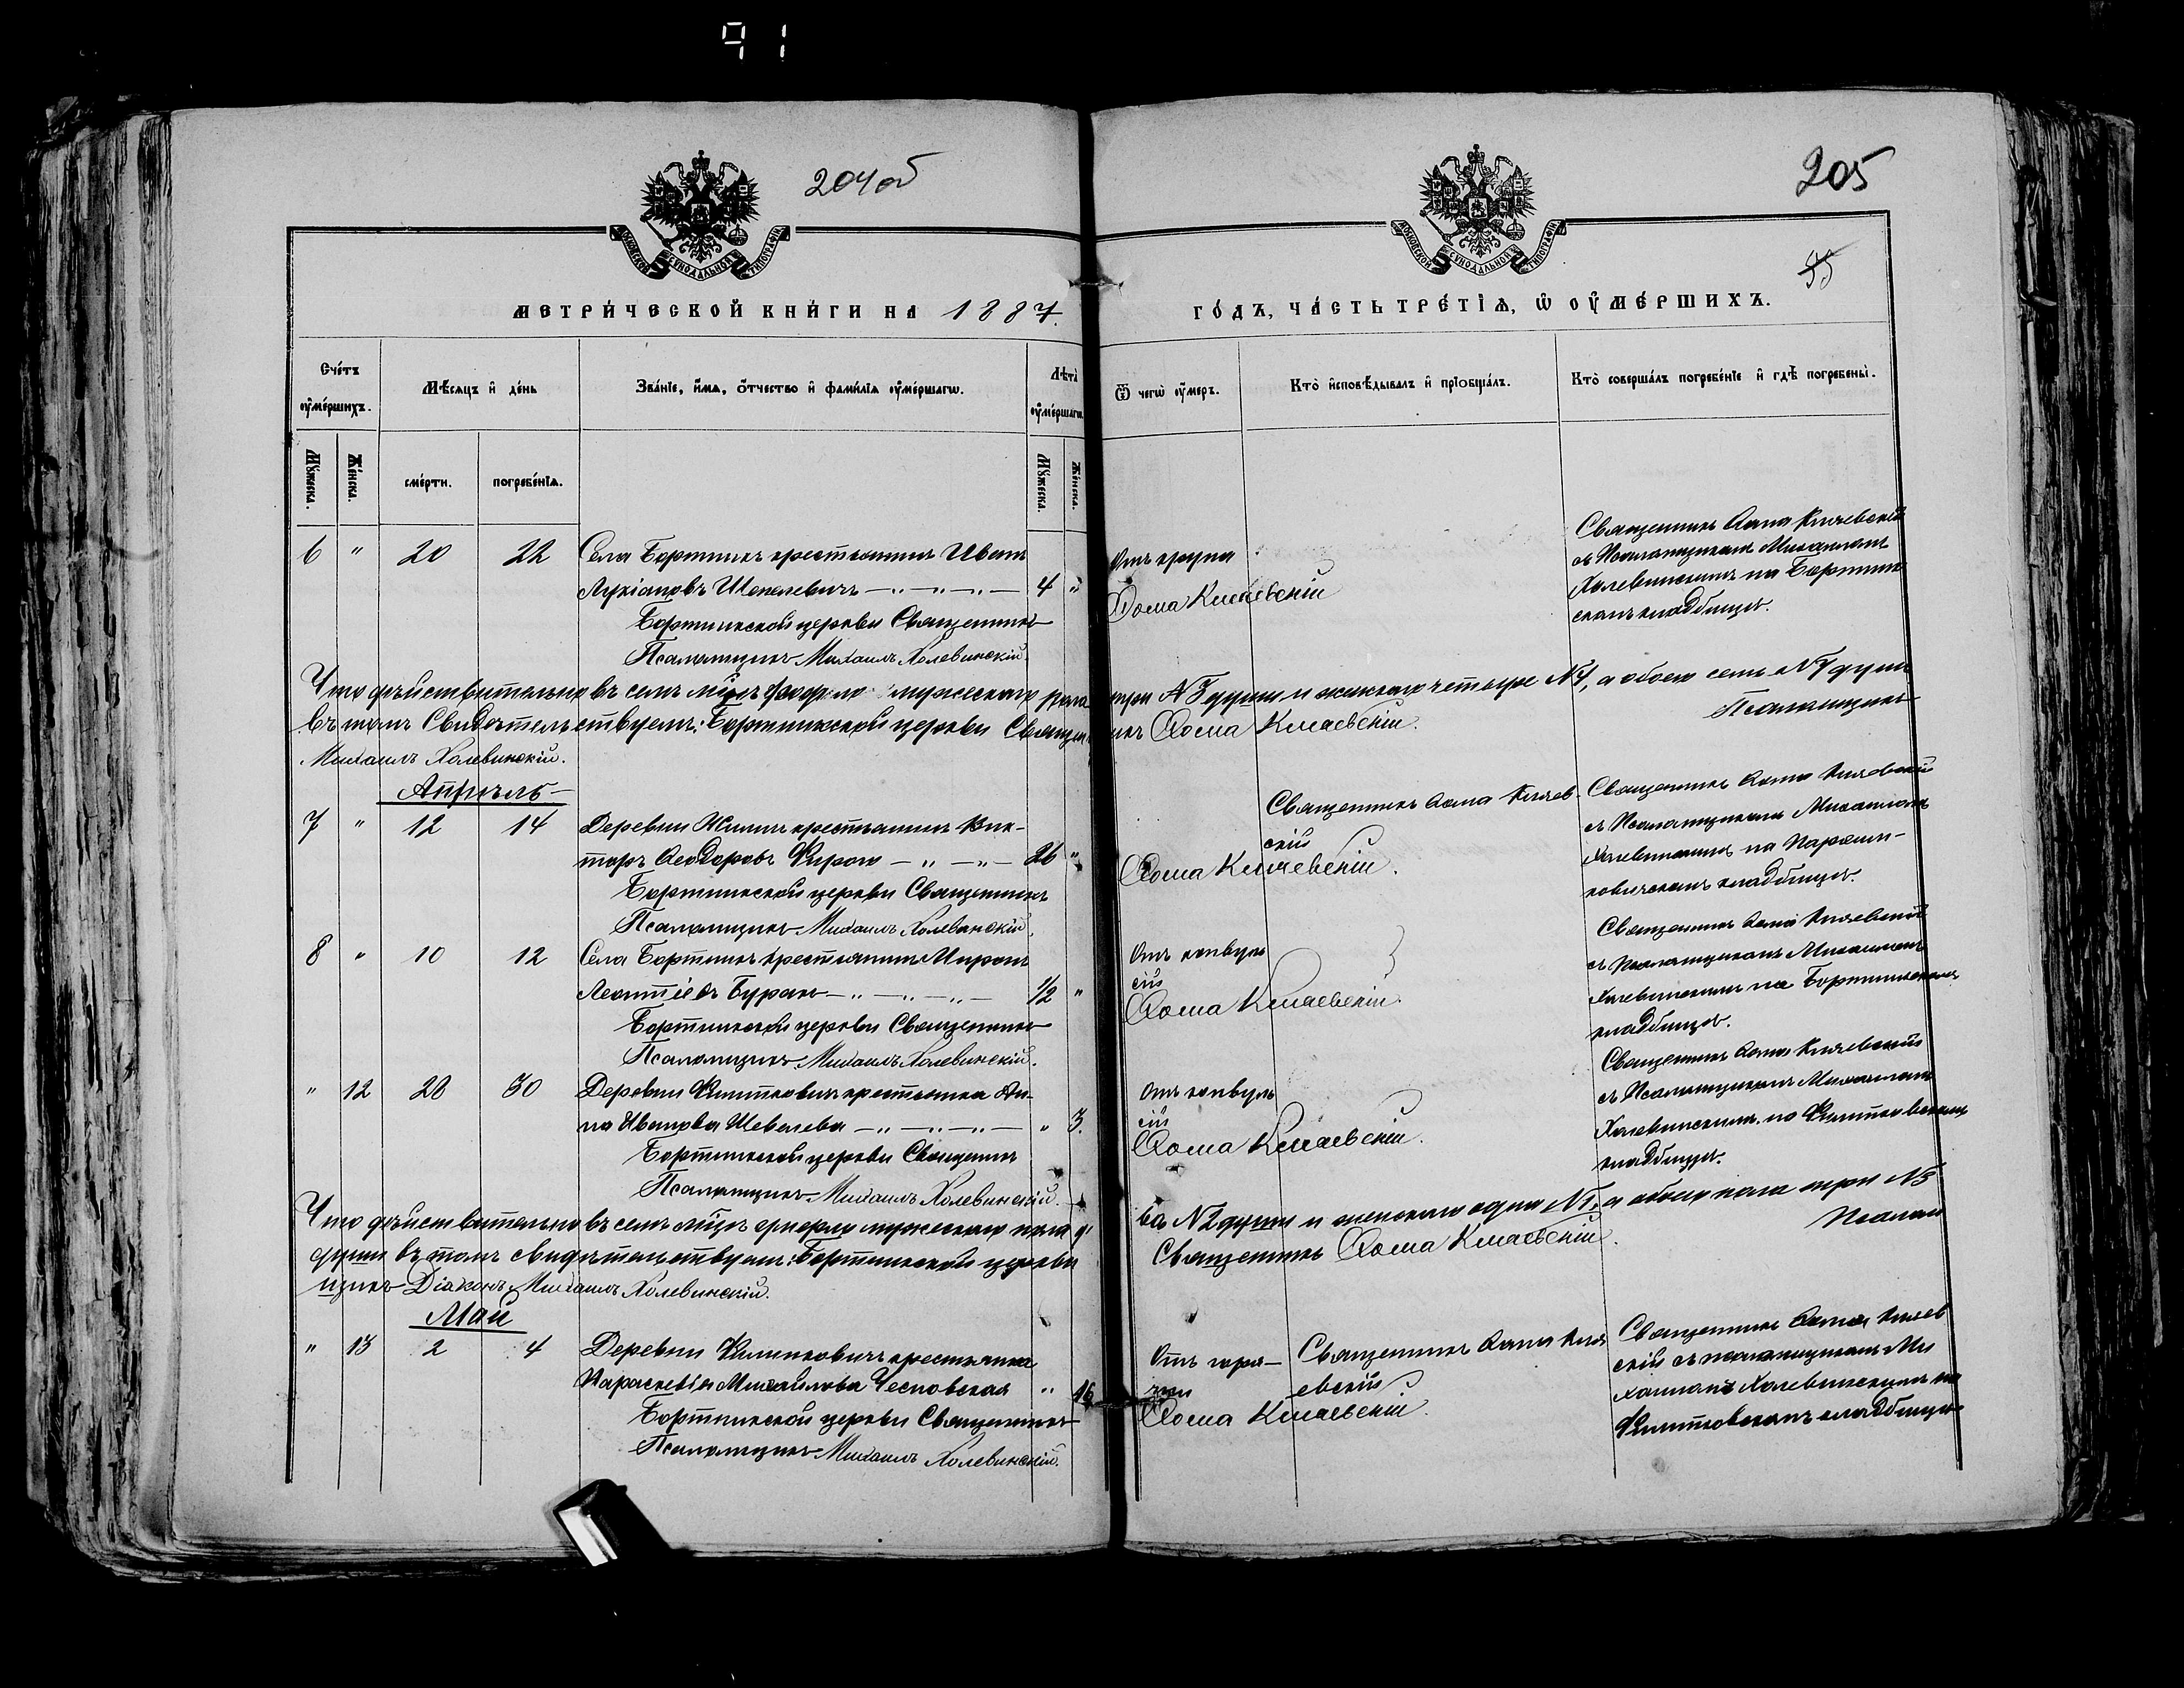 91
204об
205
55
МОСКОВСКОЙ СѴНОДАЛЬНОЙ ТИПОГРАФІИ
МОСКОВСКОЙ СѴНОДАЛЬНОЙ ТИПОГРАФІИ
МЕТРИ́ЧЕСКОЙ КНИ́ГИ НА 1887.
ГО́ДЪ, ЧА́СТЬ ТРЕ́ТІѦ, Ѡ ОУМЕ́РШИХЪ.
Сче́тъ оуме́ршихъ.
Мѣ́сяцъ и де́нь
Зва́ніе, и́мя, о́тчество и фами́лія оуме́ршагѡ.
Лѣта̀ оуме́ршагѡ.
Ѿ чегѡ̀ оу́меръ.
Кто̀ исповѣ́дывалъ и пріобща́лъ.
Кто̀ соверша́лъ погребе́ніе и гдѣ̀ погребены̀.
Мꙋ́жеска.
Же́нска.
сме́рти.
погребе́нія.
Мꙋ́жеска.
Же́нска.
6 " 20 22 Села Бортникъ крестьянинъ Иванъ
Лукіановъ Шепелевичъ —"—"—"— 4 "
Бортникской церкви Священникъ
Псаломщикъ Михаилъ Холевинскій.
Отъ крупа
Ѳома Кнаевскій
Священникъ Ѳома
съ Псаломщикомъ Михаиломъ
Холевинскимъ на Бортник
скомъ кладбищѣ.
Что дѣйствительно въ семъ мѣсяцѣ мужескаго пола три №3 души и женскаго четыре №4, а обоего семь №7 душъ
въ томъ свидѣтельствуемъ: Бортникской церкви Священникъ Ѳома Кнаевскій. Псаломщикъ
Михаилъ Холевинскій.
Апрѣль
7 " 12 14 Деревни крестьянинъ Вик-
торъ Ѳеодоровъ —"—"— 26 "
Бортникской церкви Священникъ
Псаломщикъ Михаилъ Холевинскій.
Священникъ Ѳома
скій
Ѳома Кнаевскій.
Священникъ Ѳома
съ Псаломщикомъ Михаиломъ
Холевинскимъ на
кладбищѣ.
8 " 10 12 Села Бортникъ крестьянинъ Миронъ
Леонтіевъ Буран —"—"—"— 1/2 "
Бортникской церкви Священникъ
Псаломщикъ Михаилъ Холевинскій.
Отъ конвуль
сій
Ѳома Кнаевскій.
Священникъ Ѳома
съ Псаломщикомъ Михаиломъ
Холевинскимъ на Бортникскомъ
кладбищѣ.
" 12 28 30 Деревни крестьянка Ан-
на Иванова Шевелева —"—"—"— " 3.
Бортникской церкви Священникъ
Псаломщикъ Михаилъ Холевинскій.
Отъ конвуль
сій
Ѳома Кнаевскій.
Священникъ Ѳома
съ Псаломщикомъ Михаиломъ
Холевинскимъ на
кладбищѣ.
Что дѣйствительно въ семъ мѣсяцѣ умерло мужескаго пола два №2 души и женскаго одна №1, а обоего пола три №3
души въ томъ свидѣтельствуемъ: Бортникской церкви Священникъ Ѳома Кнаевскій. Псалом
щикъ Діаконъ Михаилъ Холевинскій.
Май
" 13 2 4 Деревни крестьянка
Параскевія Михайлова Чесновская " 16
Бортникской церкви Священникъ
Псаломщикъ Михаилъ Холевинскій.
Отъ горя-
чки
Священникъ Ѳома
евскій
Ѳома Кнаевскій.
Священникъ Ѳома
скій съ псаломщикомъ Ми
хаиломъ Холевинскимъ на
кладбищѣ